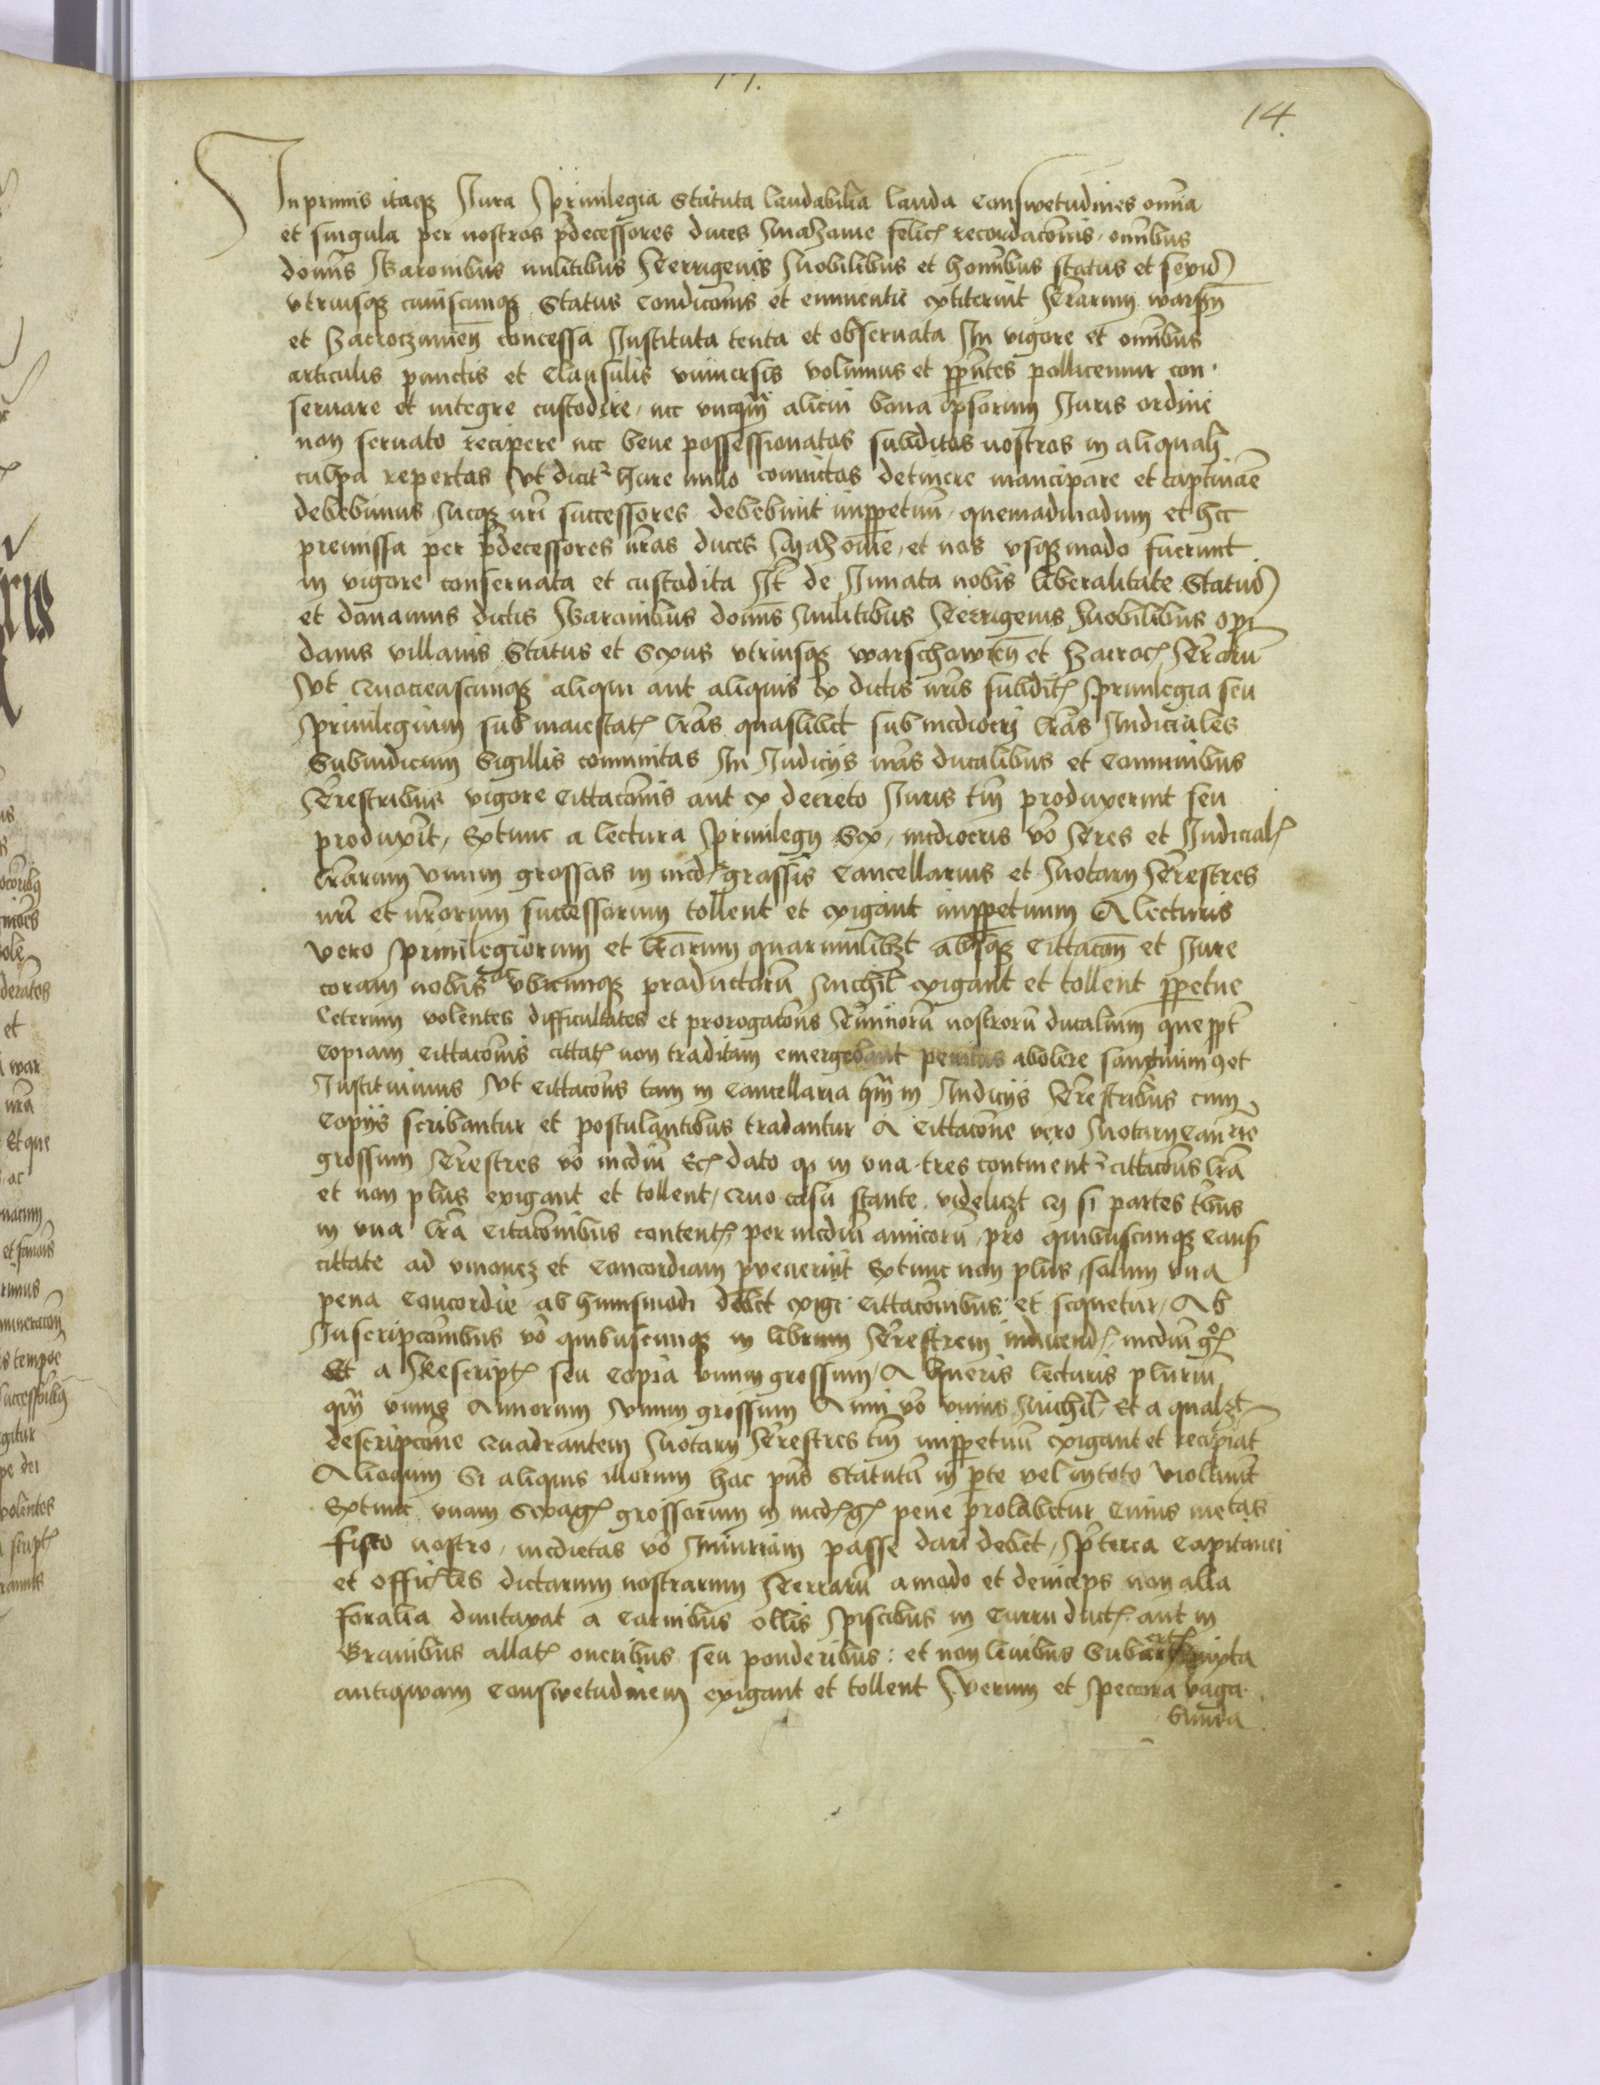 14.
Inprimis itaq Jura Privilegia Statuta laudabilia lauda Conswetudines omnia
et singula per nostros predecessores duces Mazovie felic recordaconis omnibus
domis Baronibus militibus Terrigenis Nobilibus et hominibus status et sexus
utriusq cuiuscunq Status Condiconis et eminentie extiterint Terrarum warssn
et Zacroczimien concessa Instituta tenta et observata In vigore et omnibus
articulis punctis et Clausulis universis volumus et pntes pollicemur con
servare et integre custodire nec unqm alicui bona ipsorum Juris ordine
non servato recipere nec bene possessionatos subditos nostros in aliquali
culpa repertos ut dicitr Jure nullo convictos detinere mancipare et captivare
debebimus Nosq nri successores debebunt imppetuu quemadmodum et hec
premissa per pdecessores nros duces Mazovie et nos usq modo fuerunt
in vigore conservata et custodita It de Innata nobis liberalitate Statuim
et donamus dictis Baronibus domis Militibus Terrigenis Nobilibus opi
danis villanis Status et Sexus utriusq warschowien et Zacroc Terrarum
Ut Quocienscunq aliqui aut aliquis ex dictis nris subdit Privilegia seu
Privilegium sub maiestat lras quaslibet sub mediocri lras Judiciales
Subiudicum Sigillis communitas In Judicijs nris ducalibus et Communibus
Terrestribus vigore Cittaconis aut ex decreto Juris tm produxerint seu
produxit Extunc a lectura Privilegij Sex mediocris vo Tres et Judicial
lrarum Unum grossos in med grossis Cancellarius et Notarij Terrestres
nri et nrorum successorum tollent et exigant imppetuum A lecturis
vero Privilegiorum et lrarum quarumlibzt absq Cittacon et Jure
coram nobis ac ubicunq productaru Nichil exigant et tollent ppetue
Ceterum volentes difficultates et prorogacons Terminoru nostroru ducalium que ppt
Copiam Cittaconis cittat non traditam emergebant penitus abolere sanctimus et
Instituimus Ut Cittacons tam in Cancellaria qm in Judicijs Terrestribus cum
Copijs scribantur et postulantibus tradantur A Cittacone vero Notarij Cancrie
grossum Terrestres vo mediu Et dato qi in una tres continentr cittacons lra
et non plus exigant et tollent Quo casu stante videliczt si partes tribus
in una lra Citaconibus content per mediu amicoru pro quibuscunq Caus
cittate ad unionez et Concordiam pvenerint Extunc non plus solum una
pena Concordie ab huiusmodi debet exigi Cittaconibus et sequetur Ab
Inscripconibus vo quibuscunq in librum Terrestrem inducend mediu gr
Et a Rescript seu Copia unum grossum A Numeris lecturis plurium
qm unius Annorum Unum grossum Anni vo unius Nichil Et a qualzt
descripcone Quadrantem Notarij Terrestres tm imppetuu exigant et recipiat
Alioquin Si aliquis illorum hac pns Statutu in pte vel in toto violavit
Extunc unam Sexag grossorum in med g pene prolabetur Cuius metas
fisco nostro medietas vo Iniuriam passe dari debet Preterea Capitanei
et Officiles dictarum nostrarum Terrarum amodo et deinceps non alia
foralia duntaxat a Carnibus ollis Piscibus in Curru duct aut in
Granibus allat oneribus seu ponderibus et non levibus iuxta
antiquam Conswetudinem exigant et tollent Verum et Peccora vaga